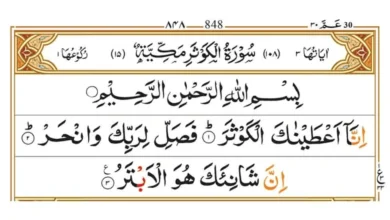 ٨٤٨ 848 عـم ٣٠ 30
اٰيَاتُهَا ٣ (١٠٨) سُوْرَةُ الْكَوْثَرِ مَكِّيَّةٌ (١٥) رُكُوْعُهَا ١
بِسْمِ اللّٰهِ الرَّحْمٰنِ الرَّحِيْمِ
اِنَّاۤ اَعْطَيْنٰكَ الْكَوْثَرَ ؕ ١ فَصَلِّ لِرَبِّكَ وَانْحَرْ ؕ ٢
اِنَّ شَانِئَكَ هُوَ الْاَبْتَرُ ٣ ع